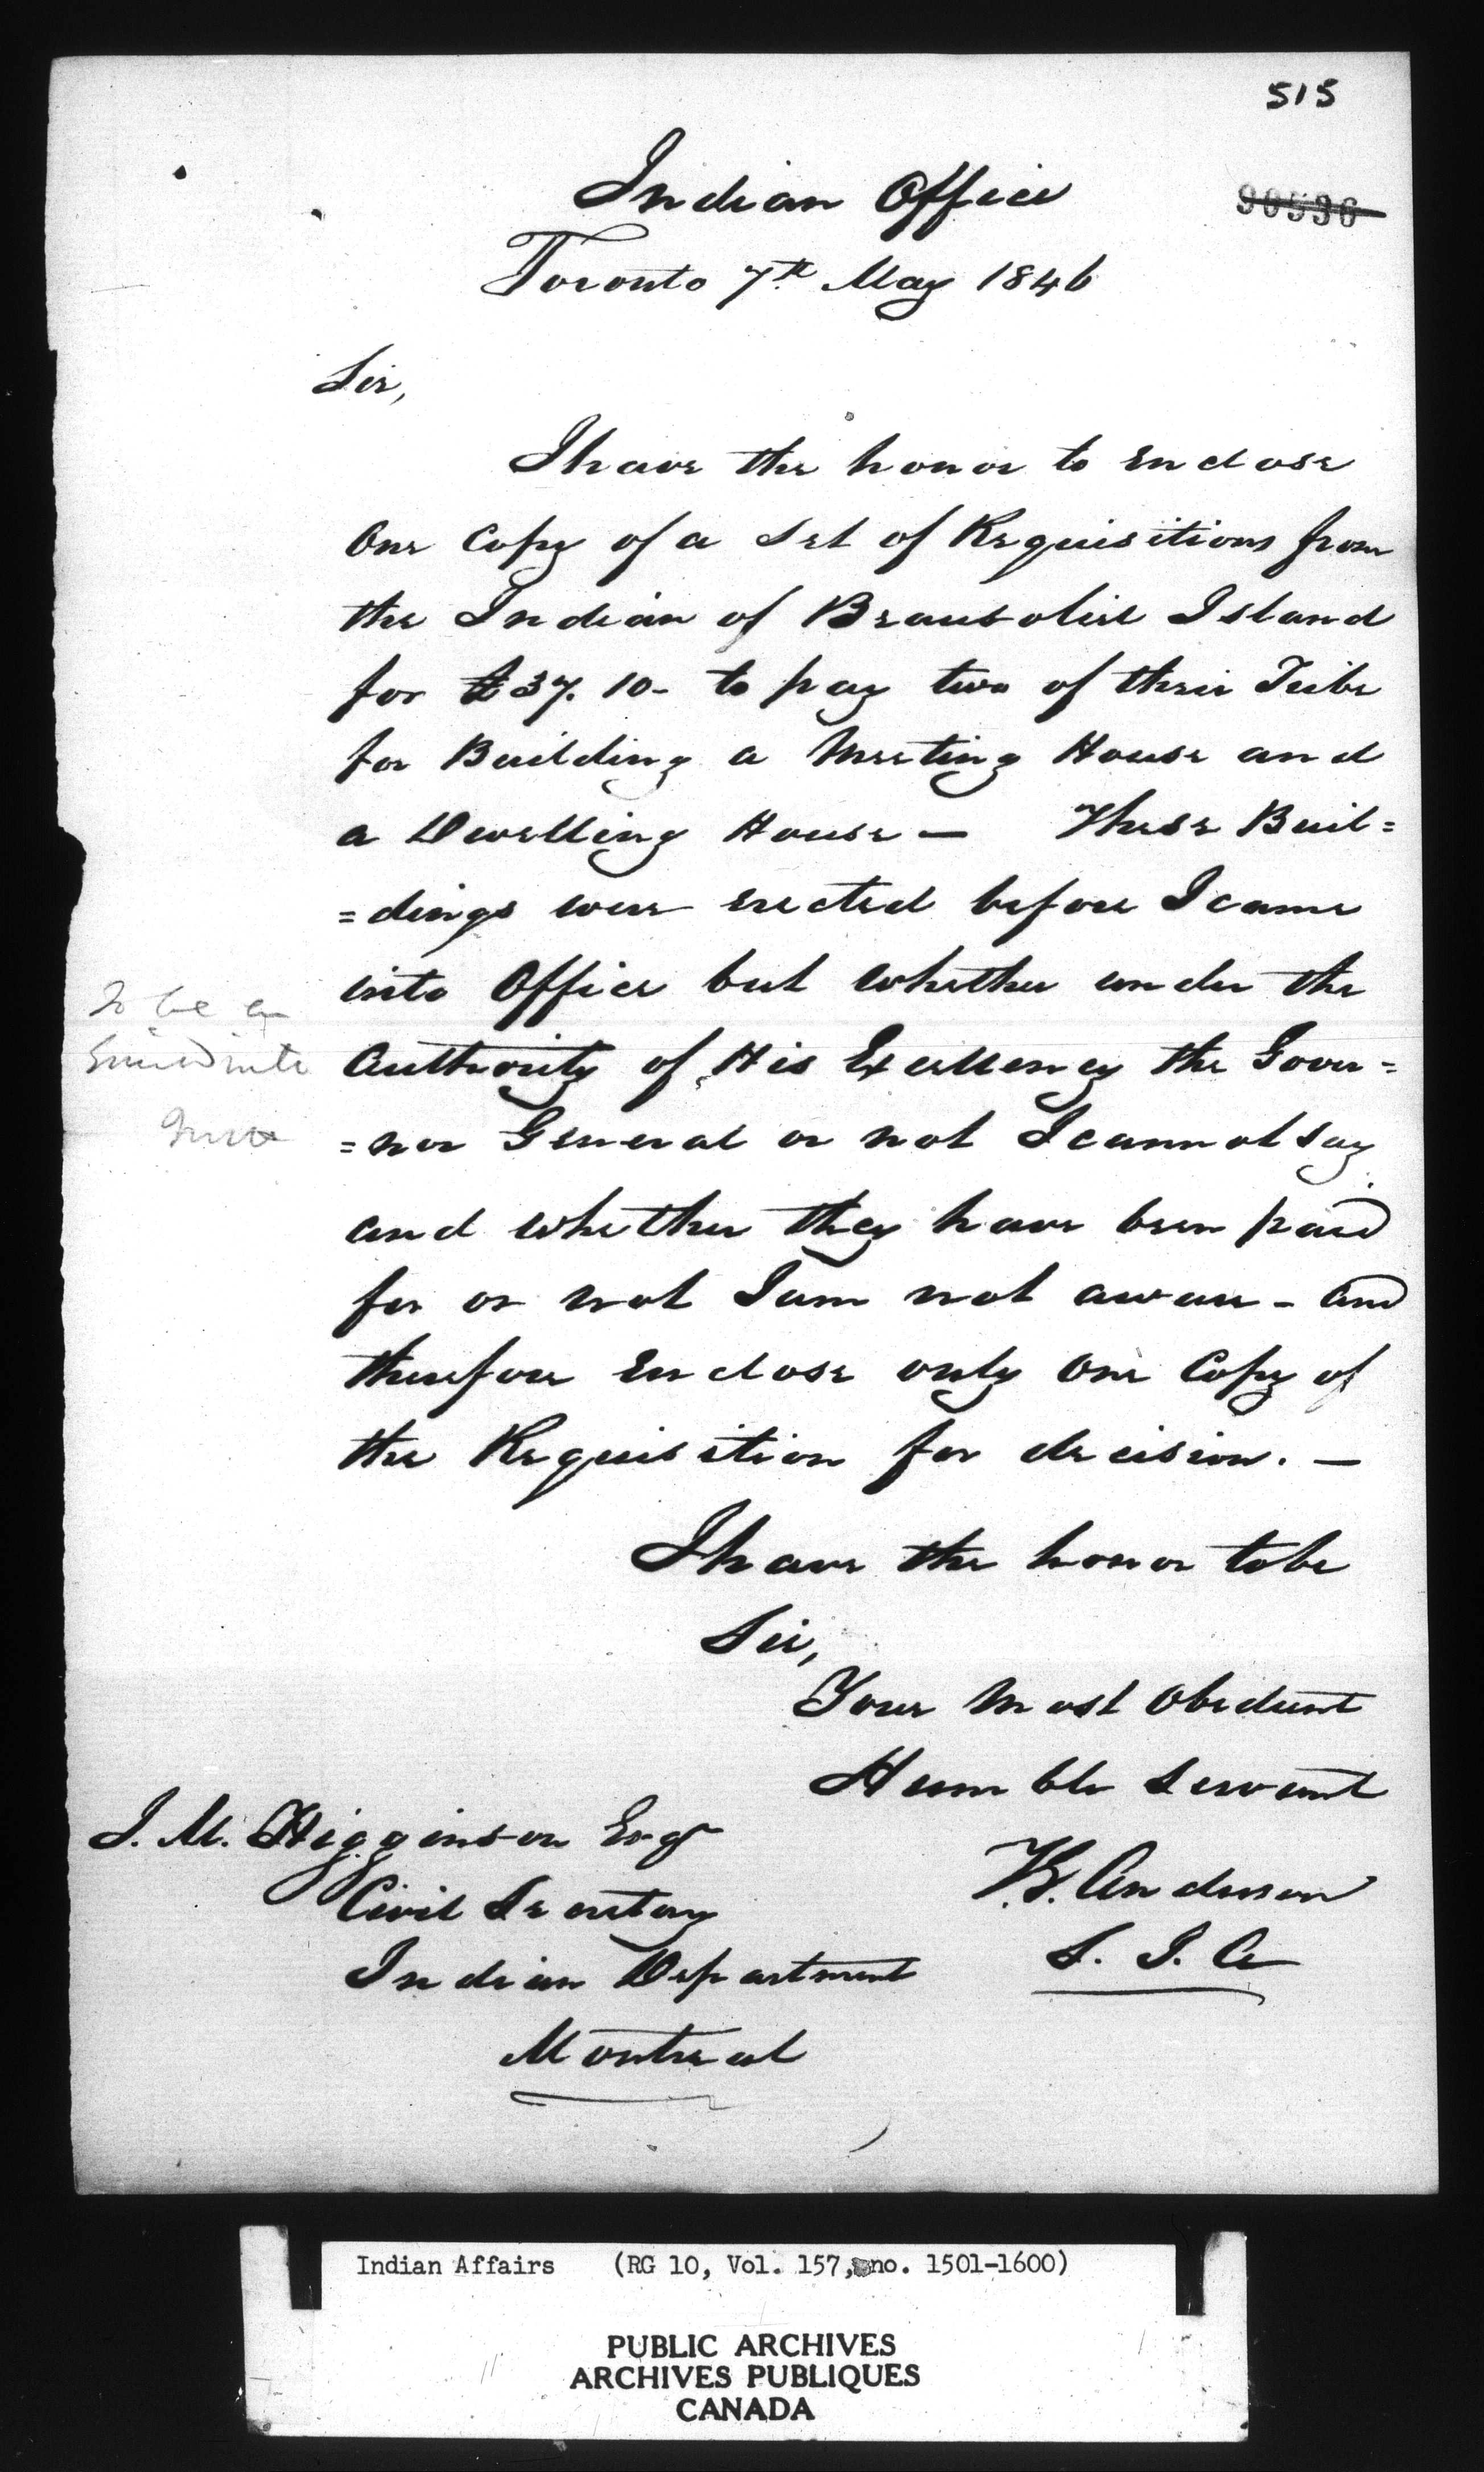 515
Indian Office
90536
Toronto 7th May 1846
Sir,
I have the honor to enclose
One Copy of a Set of Requisitions from
the Indian of Beausoliel Island
for £37. 10 - to pay two of their Tribe
for Building a Meeting House and
a Dwelling House — These Buil=
=dings were erected before I came
into Office but whether under the
Authority of His Excellency the Gover=
=nor General or not I cannot say
and whether they have been paid
for or not I am not aware - and
therefore Enclose only One Copy of
the Requisition for decision. —
To be
I have the honor to be
Sir,
Your Most Obedient
Humble Servant
J. M. Higginson Esqr
Civil Secretary
Indian Department
Montreal
Anderson
S. I. A
Indian Affairs (RG 10, Vol. 157, no. 1501-1600)
PUBLIC ARCHIVES
ARCHIVES PUBLIQUES
CANADA